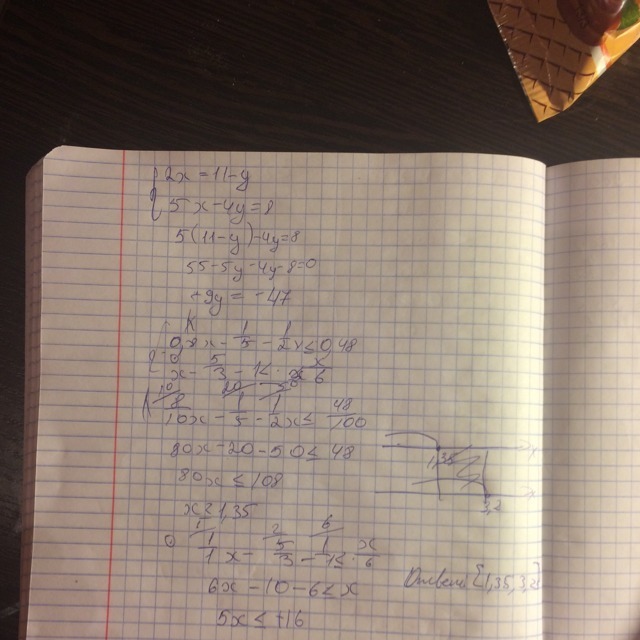 2x = 11-y
5x-4y=8
5(11-y)-4y=8
55-5y-4y-8=0
-9y = -47
0,8x - 1/5 - 2x ≤ 0,48
x - 5/3 - 1 ≤ x/6
8/10x - 1/5 - 1/2x ≤ 48/100
80x-20-50 ≤ 48
80x ≤ 108
x ≥ 1,35
1/1 x - 5/3 - 1/1 ≤ x/6
6x-10-6≤x
5x ≤ +16
3,2
Ответ [1,35;3,2]